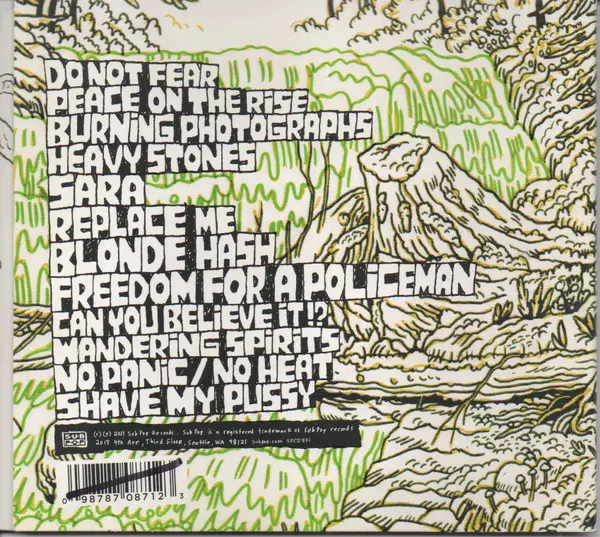 DO NOT FEAR
PEACE ON THE RISE
BURNING PHOTOGRAPHS
HEAVY STONES
SARA
REPLACE ME
BLONDE HASH
FREEDOM FOR A POLICEMAN
CAN YOU BELIEVE IT!?
WANDERING SPIRITS
NO PANIC/NO HEAT
SHAVE MY PUSSY
SUB POP
(c)(p) 2011 Sub Pop Records. Sub Pop is a registered trademark of Sub Pop records
2013 4th Ave, Third Floor, Seattle, WA 98121 subpop.com SPCD871
0 98787 08712 3